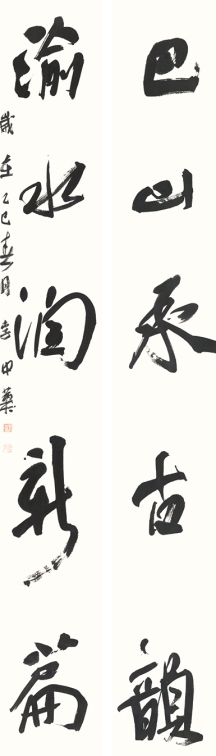 巴山承古韻
渝水润新篇
歲在乙巳春月